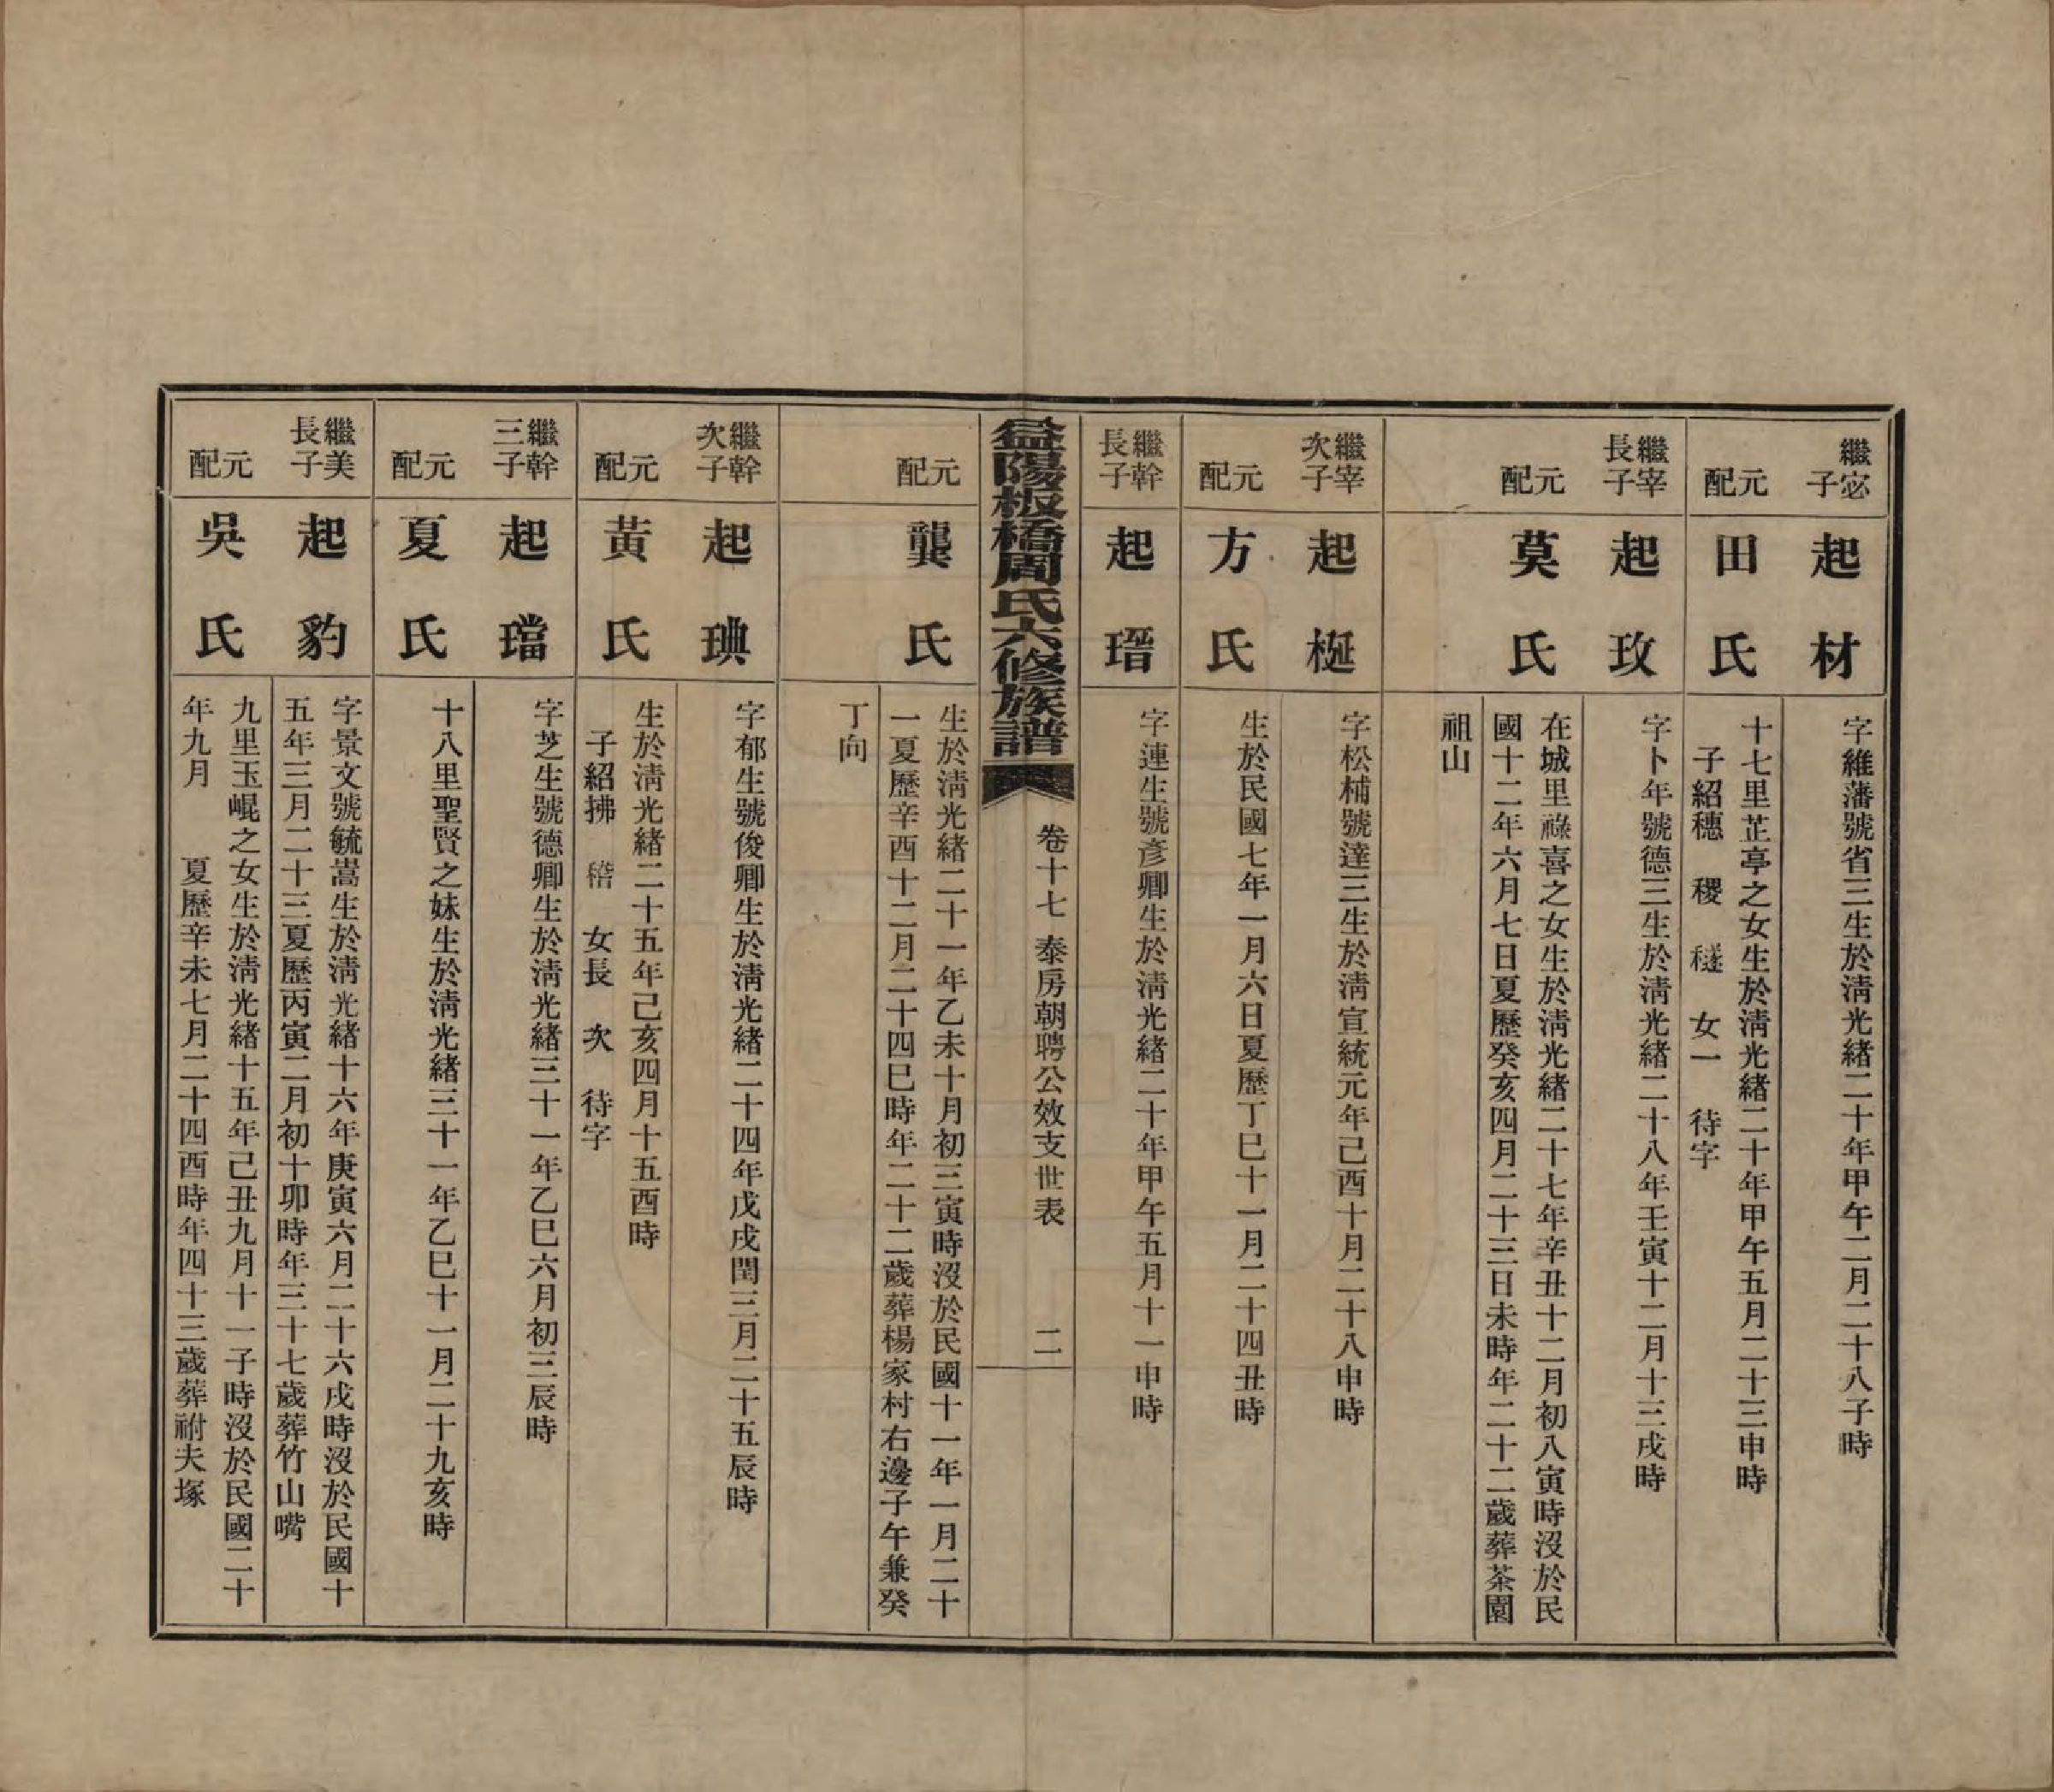 繼宓子
起材
字維藩號省三生於淸光緖二十年甲午二月二十八子時
元配
田氏
十七里芷亭之女生於淸光緖二十年甲午五月二十三申時
子紹穗 稷 穟 女一 待字
繼宰長子
起玫
字卜年號德三生於淸光緖二十八年壬寅十二月十三戌時
元配
莫氏
在城里祿喜之女生於淸光緖二十七年辛丑十二月初八寅時沒於民
國十二年六月七日夏歷癸亥四月二十三日未時年二十二歲葬茶園
祖山
繼宰次子
起梴
字松楠號達三生於淸宣統元年己酉十月二十八申時
元配
方氏
生於民國七年一月六日夏歷丁巳十一月二十四丑時
繼幹長子
起瑨
字連生號彥卿生於淸光緖二十年甲午五月十一申時
益陽板橋周氏六修族譜
卷十七 泰房朝聘公效支世表 二
元配
龔氏
生於淸光緖二十一年乙未十月初三寅時沒於民國十一年一月二十
一夏歷辛酉十二月二十四巳時年二十二歲葬楊家村右邊子午兼癸
丁向
繼幹次子
起琠
字郁生號俊卿生於淸光緖二十四年戊戌閏三月二十五辰時
元配
黃氏
生於淸光緖二十五年己亥四月十五酉時
子紹拂 㮲 女長 次 待字
繼幹三子
起璫
字芝生號德卿生於淸光緖三十一年乙巳六月初三辰時
元配
夏氏
十八里聖賢之妹生於淸光緖三十一年乙巳十一月二十九亥時
繼美長子
起豹
字景文號毓嵩生於淸光緖十六年庚寅六月二十六戌時沒於民國十
五年三月二十三夏歷丙寅二月初十卯時年三十七歲葬竹山嘴
元配
吳氏
九里玉崐之女生於淸光緖十五年己丑九月十一子時沒於民國二十
年九月 夏歷辛未七月二十四酉時年四十三歲葬祔夫塚